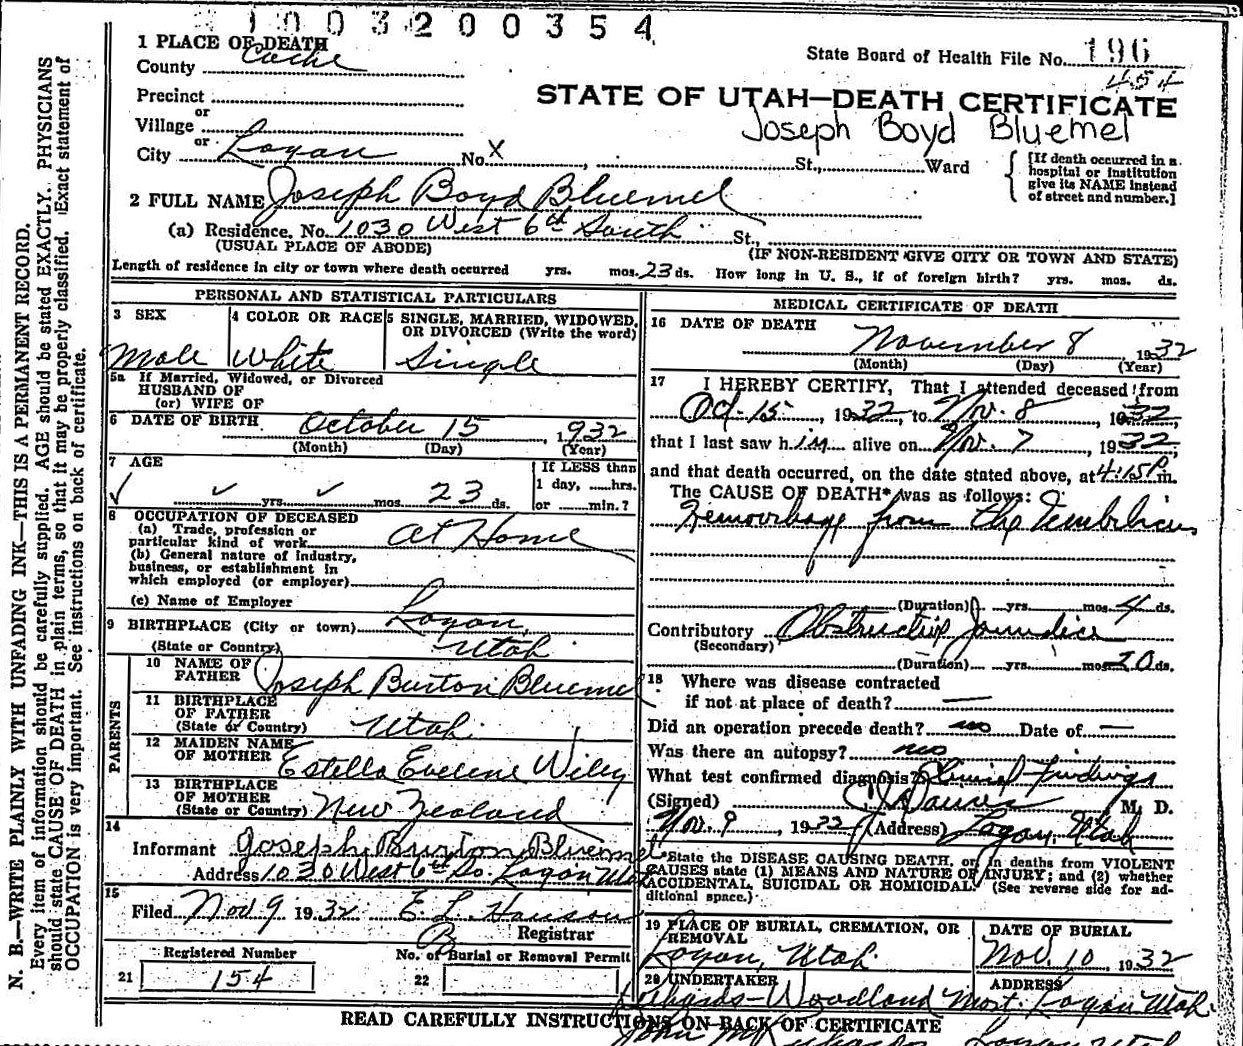 1003200354
1 PLACE OF DEATH
County Cache
State Board of Health File No. 196
454
Precinct
or
Village
or
City Logan No. X St., Ward
STATE OF UTAH—DEATH CERTIFICATE
Joseph Boyd Bluemel
[If death occurred in a
hospital or institution
give its NAME instead
of street and number.]
2 FULL NAME Joseph Boyd Bluemel
(a) Residence. No. 1030 West 6th South St.,
(USUAL PLACE OF ABODE) (IF NON-RESIDENT GIVE CITY OR TOWN AND STATE)
Length of residence in city or town where death occurred yrs. mos. 23 ds. How long in U. S., if of foreign birth? yrs. mos. ds.
PERSONAL AND STATISTICAL PARTICULARS
3 SEX
Male
4 COLOR OR RACE
White
5 SINGLE, MARRIED, WIDOWED,
OR DIVORCED (Write the word)
Single
5a If Married, Widowed, or Divorced
HUSBAND OF
(or) WIFE OF
6 DATE OF BIRTH October 15, 1932
(Month) (Day) (Year)
7 AGE
yrs. mos. 23 ds.
If LESS than
1 day, ......hrs.
or ......min.?
8 OCCUPATION OF DECEASED
(a) Trade, profession or
particular kind of work At Home
(b) General nature of industry,
business, or establishment in
which employed (or employer)
(c) Name of Employer
9 BIRTHPLACE (City or town) Logan,
(State or Country) Utah
PARENTS
10 NAME OF
FATHER Joseph Burton Bluemel
11 BIRTHPLACE
OF FATHER
(State or Country) Utah
12 MAIDEN NAME
OF MOTHER Estella Evelene Wiley
13 BIRTHPLACE
OF MOTHER
(State or Country) New Zealand
14
Informant Joseph Burton Bluemel
Address 1030 West 6th So. Logan Utah
15
Filed Nov 9 1932 E. L. Hanson
Registrar
Registered Number
21 154
No. of Burial or Removal Permit
22
MEDICAL CERTIFICATE OF DEATH
16 DATE OF DEATH
November 8, 1932
(Month) (Day) (Year)
17 I HEREBY CERTIFY, That I attended deceased from
Oct-15, 1932, to Nov. 8, 1932,
that I last saw him alive on Nov. 7, 1932,
and that death occurred, on the date stated above, at 4:15 P. m.
The CAUSE OF DEATH* was as follows:
Hemorrhage from the Umbilicus
(Duration) yrs. mos. 4 ds.
Contributory Obstructive Jaundice
(Secondary)
(Duration) yrs. mos. 20 ds.
18 Where was disease contracted
if not at place of death? —
Did an operation precede death? no Date of —
Was there an autopsy? no
What test confirmed diagnosis? Clinical Findings
(Signed) M. D.
Nov. 9, 1932 (Address) Logan, Utah
*State the DISEASE CAUSING DEATH, or, in deaths from VIOLENT
CAUSES state (1) MEANS AND NATURE OF INJURY; and (2) whether
ACCIDENTAL, SUICIDAL OR HOMICIDAL. (See reverse side for ad-
ditional space.)
19 PLACE OF BURIAL, CREMATION, OR
REMOVAL
Logan, Utah.
DATE OF BURIAL
Nov. 10 1932
20 UNDERTAKER
ADDRESS
Richards-Woodland Mort. Logan Utah.
READ CAREFULLY INSTRUCTIONS ON BACK OF CERTIFICATE
John Logan Utah
N. B.—WRITE PLAINLY WITH UNFADING INK—THIS IS A PERMANENT RECORD.
Every item of information should be carefully supplied. AGE should be stated EXACTLY. PHYSICIANS
should state CAUSE OF DEATH in plain terms, so that it may be properly classified. Exact statement of
OCCUPATION is very important. See instructions on back of certificate.